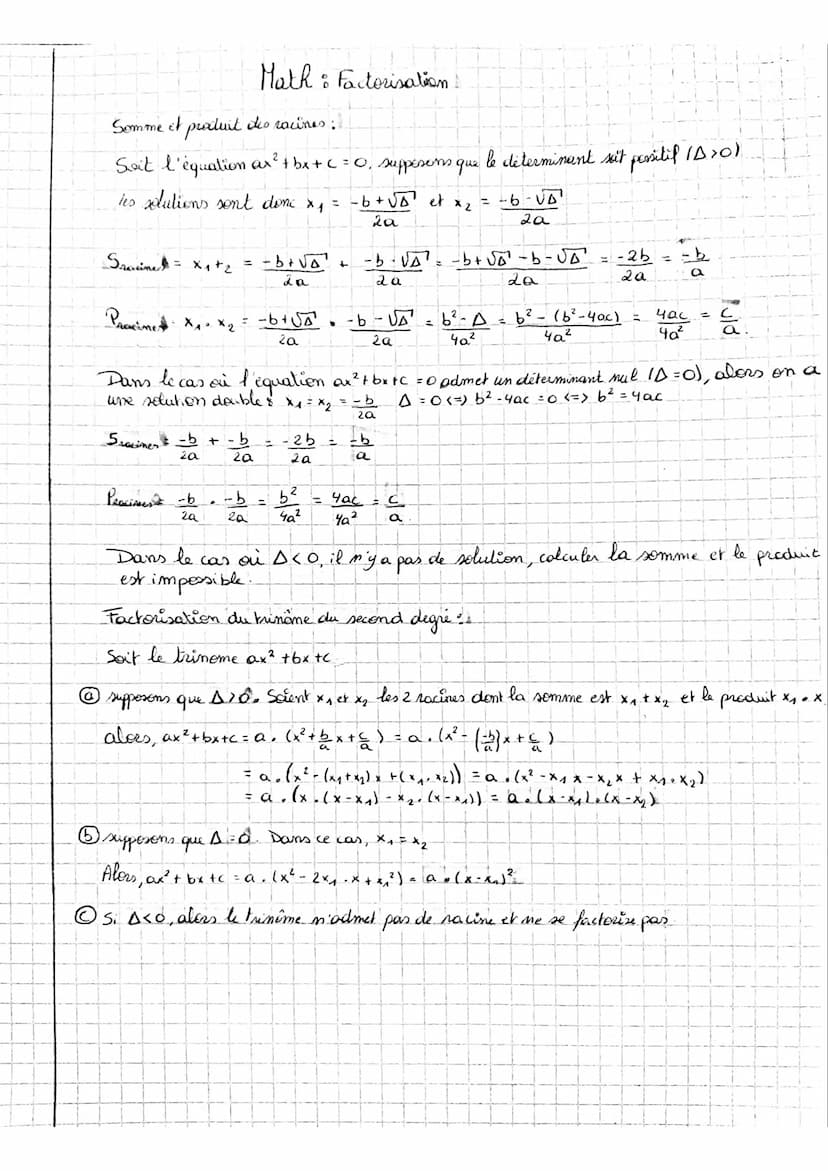 Math : Factorisation
Somme et produit des racines :
Soit l'équation ax² + bx + c = 0, supposons que le déterminant soit positif (Δ > 0)
les solutions sont donc x₁ = (-b + √Δ)/2a et x₂ = (-b - √Δ)/2a
Sracines = x₁+₂ = (-b + √Δ)/2a + (-b - √Δ)/2a = (-b + √Δ - b - √Δ)/2a = -2b/2a = -b/a
Pracines = x₁ . x₂ = (-b + √Δ)/2a . (-b - √Δ)/2a = (b² - Δ)/4a² = (b² - (b² - 4ac))/4a² = 4ac/4a² = c/a.
Dans le cas où l'équation ax² + bx + c = 0 admet un déterminant nul (Δ = 0), alors on a
une solution double : x₁ = x₂ = -b/2a Δ = 0 <=> b² - 4ac = 0 <=> b² = 4ac
Sracines = -b/2a + -b/2a = -2b/2a = -b/a
Pracines = -b/2a . -b/2a = b²/4a² = 4ac/4a² = c/a.
Dans le cas où Δ < 0, il n'y a pas de solution, calculer la somme et le produit
est impossible.
Factorisation du trinôme du second degré :
Soit le trinome ax² + bx + c
ⓐ supposons que Δ > 0. Soient x₁ et x₂ les 2 racines dont la somme est x₁ + x₂ et le produit x₁ . x
alors, ax² + bx + c = a . (x² + b/a x + c/a) = a . (x² - (-b/a)x + c/a)
= a . (x² - (x₁ + x₂) x + (x₁ . x₂)) = a . (x² - x₁ x - x₂ x + x₁ . x₂)
= a . (x . (x - x₁) - x₂ . (x - x₁)) = a . (x - x₁) . (x - x₂)
ⓑ supposons que Δ = 0. Dans ce cas, x₁ = x₂
Alors, ax² + bx + c = a . (x² - 2x₁ . x + x₁²) = a . (x - x₁)²
ⓒ Si Δ < 0, alors le trinôme n'admet pas de racine et ne se factorise pas.